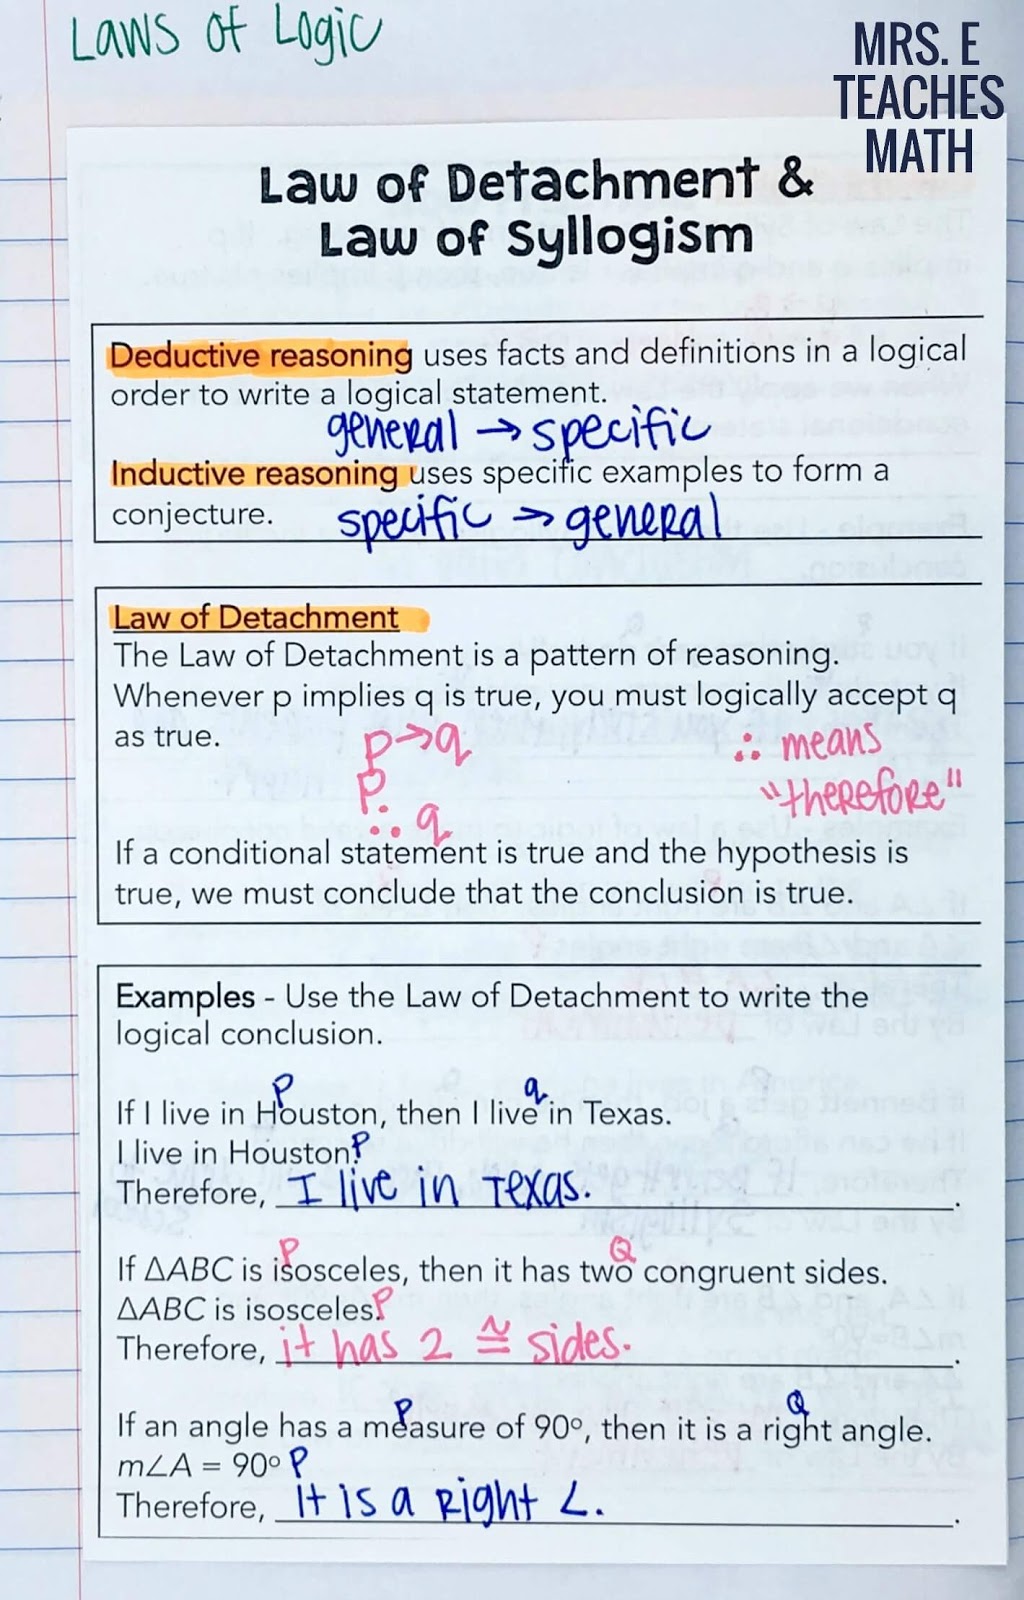 Laws of Logic
MRS. E
TEACHES
MATH
Law of Detachment &
Law of Syllogism
Deductive reasoning uses facts and definitions in a logical
order to write a logical statement.
general → specific
Inductive reasoning uses specific examples to form a
conjecture.
specific → general
Law of Detachment
The Law of Detachment is a pattern of reasoning.
Whenever p implies q is true, you must logically accept q
as true.
p→q
p
∴ q
∴ means
"therefore"
If a conditional statement is true and the hypothesis is
true, we must conclude that the conclusion is true.
Examples - Use the Law of Detachment to write the
logical conclusion.
P q
If I live in Houston, then I live in Texas.
I live in Houston. P
Therefore, I live in Texas.
P Q
If △ABC is isosceles, then it has two congruent sides.
△ABC is isosceles. P
Therefore, it has 2 ≅ sides.
P Q
If an angle has a measure of 90°, then it is a right angle.
m∠A = 90° P
Therefore, It is a right ∠.